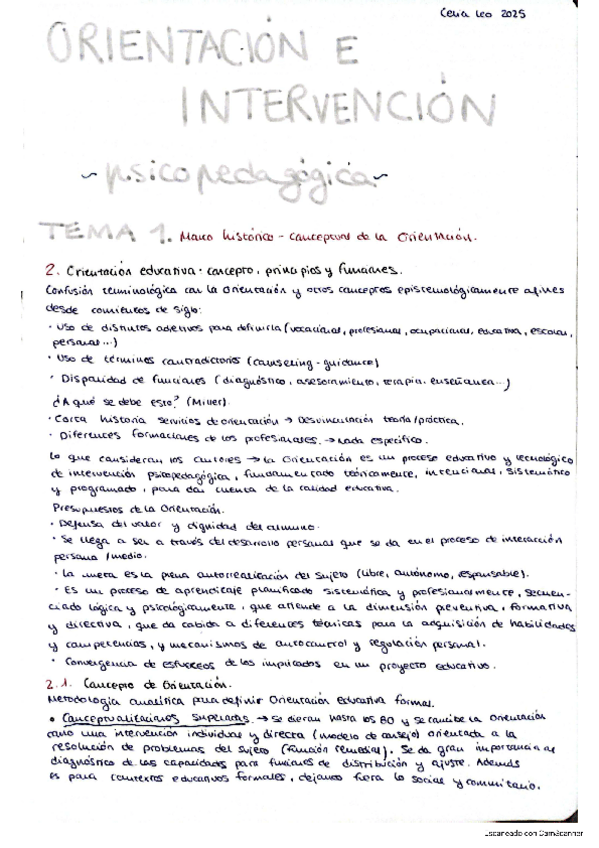 Celia Leo 2025
ORIENTACIÓN E
INTERVENCIÓN
~psicopedagógica~
TEMA 1. Marco histórico - conceptual de la Orientación.
2. Orientación educativa: concepto, principios y funciones.
Confusión terminológica con la Orientación y otros conceptos epistemológicamente afines
desde comienzos de siglo:
· Uso de distintos adjetivos para definirla (vocacional, profesional, ocupacional, educativa, escolar,
personal...)
· Uso de términos contradictorios (counseling - guidance)
· Disparidad de funciones (diagnóstico, asesoramiento, terapia, enseñanza...)
¿A qué se debe esto? (Miller).
· Corta historia servicios de orientación → Desvinculación teoría/práctica.
· Diferentes formaciones de los profesionales. → nada específico.
Lo que consideran los autores → la Orientación es un proceso educativo y tecnológico
de intervención psicopedagógica, fundamentado teóricamente, intencional, sistemático
y programado, para dar cuenta de la calidad educativa.
Presupuestos de la Orientación.
· Defensa del valor y dignidad del alumno.
· Se llega a ser a través del desarrollo personal que se da en el proceso de interacción
persona/medio.
· La meta es la plena autorrealización del sujeto (libre, autónomo, responsable).
· Es un proceso de aprendizaje planificado sistemática y profesionalmente, secuen-
ciado lógica y psicológicamente, que atiende a la dimensión preventiva, formativa
y directiva, que da cabida a diferentes técnicas para la adquisición de habilidades
y competencias, y mecanismos de autocontrol y regulación personal.
· Convergencia de esfuerzos de los implicados en un proyecto educativo.
2.1. Concepto de Orientación.
Metodología analítica para definir Orientación educativa formal.
• Conceptualizaciones superadas. → Se dieron hasta los 80 y se concibe la Orientación
como una intervención individual y directa (modelo de consejo) orientada a la
resolución de problemas del sujeto (función remedial). Se da gran importancia al
diagnóstico de las capacidades para funciones de distribución y ajuste. Además
es para contextos educativos formales, dejando fuera lo social y comunitario.
Escaneado con CamScanner